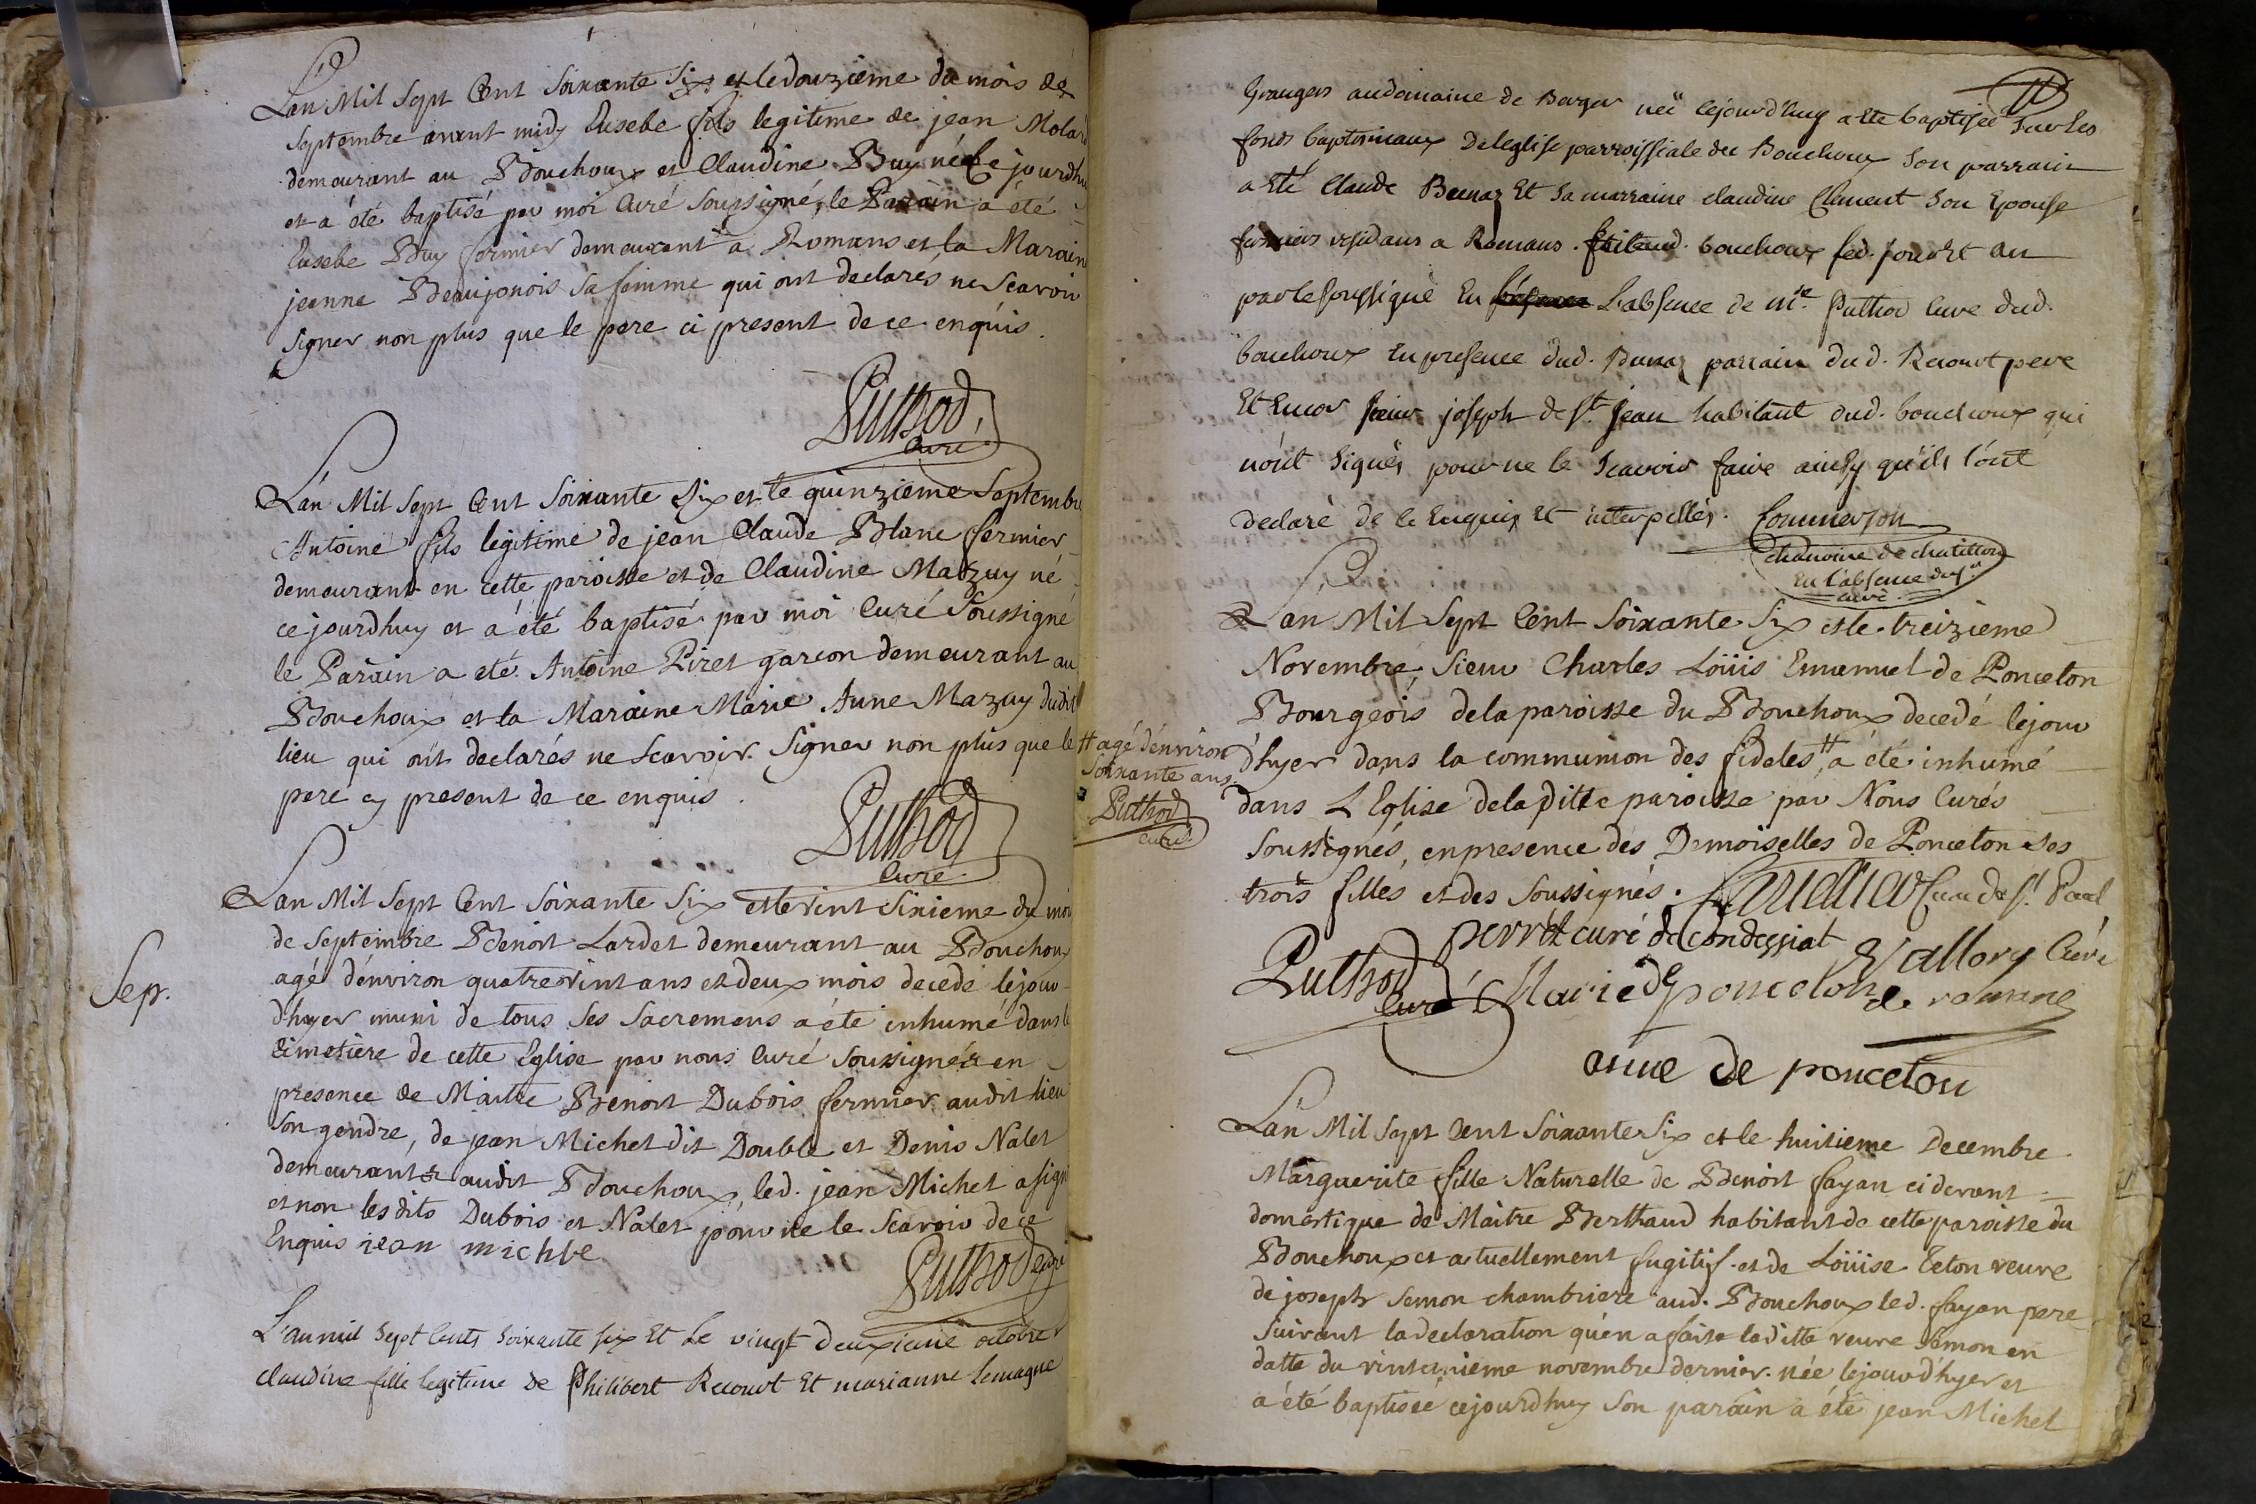 L'an Mil Sept Cent Soixante Six et le douzieme du mois de
Septembre avant midy Eusebe fils legitime de jean Molard
demeurant au Bouchoux et Claudine Buy né ce jourdhuy
et a été baptisé par moi Curé Soussigné, le Parain a été
Eusebe Buy fermier demeurant a Romans et la Maraine
jeanne Beaujonois sa femme qui ont declarés ne Scavoir
Signer non plus que le pere ci present de ce enquis.
Puthod
Curé
L'an Mil Sept Cent Soixante Six et le quinzieme Septembre
Antoine fils legitime de jean Claude Blanc fermier
demeurant en cette paroisse et de Claudine Mazuy né
ce jourdhuy et a été baptisé par moi Curé Soussigné
le Parain a eté Antoine Piret garcon demeurant au
Bouchoux et la Maraine Marie Anne Mazuy dudit
lieu qui ont declarés ne Scavoir Signer non plus que le
pere cy present de ce enquis.
Puthod
Curé
Sep.
L'an Mil Sept Cent Soixante Six et le vint Sixieme du mois
de Septembre Benoit Lardet demeurant au Bouchoux
agé d'environ quatre vint ans et deux mois decedé lejour
d'hyer muni de tous Ses Sacremens a été inhumé dans le
Cimetiere de cette Eglise par nous Curé Soussigné en
presence de Maitre Benoit Dubois fermier audit lieu
Son gendre, de jean Michel dit Double et Denis Nalet
demeurants audit Bouchoux, led. jean Michel a signé
et non lesdits Dubois et Nalet pour ne le Scavoir de ce
Enquis jean michle
Puthod curé
L'an mil Sept Cents Soixante Six Et Le vingt deuxieme octobre
claudine fille legitime de Philibert Recourt Et marianne Lemagne
Grangers audomaine de Berger neé cejourd'huy a ete baptisée sur les
fonds baptismaux de leglise parroissiale du Bouchoux Son parrain
a Eté Claude Bunaz Et Sa marraine claudine Clement Son Epouse
fermiers residans a Romans. fait aud. bouchoux led. jour Et an
par le soussigné En L'absence de Mre Puthod Curé dud.
bouchoux En presence dud. Bunaz parrain du d. Recourt pere
Et Encor Sieur joseph de St Jean habitant dud. bouchoux qui
n'ont Signés pour ne le Scavoir faire ainsy qu'ils l'ont
declaré de ce Enquis Et interpellés. Commerson
chanoine de chatillon
En l'absence du Sr
curé
L'an Mil Sept Cent Soixante Six et le treizieme
Novembre, Sieur Charles Loüis Emanuel de Ponceton
Bourgeois de la paroisse du Bouchoux decedé lejour
d'hyer dans la communion des fideles # a été inhumé
# agé d'environ
Soixante ans.
Puthod
curé
dans L'Eglise de la ditte paroisse par Nous Curés
Soussignés, en presence des Demoiselles de Ponceton Ses
trois filles et des Soussignés. Curé de St Paul
perret curé de Condessiat Vallory Curé
Puthod
Curé Marie de ponceton de romane
anne de ponceton
L'an Mil Sept Cent Soixante Six et le huitieme Decembre
Marguerite fille Naturelle de Benoit fayan ci devant
domestique de Maitre Berthaud habitant de cette paroisse du
Bouchoux et actuellement fugitif et de Loüise Teton veuve
de joseph Semon chambriere aud. Bouchoux led. fayan pere
Suivant la declaration qu'en a faite laditte veuve Semon en
datte du vintunieme novembre dernier. née lejour d'hyer et
a été baptisée cejourdhuy Son parain a été jean Michel